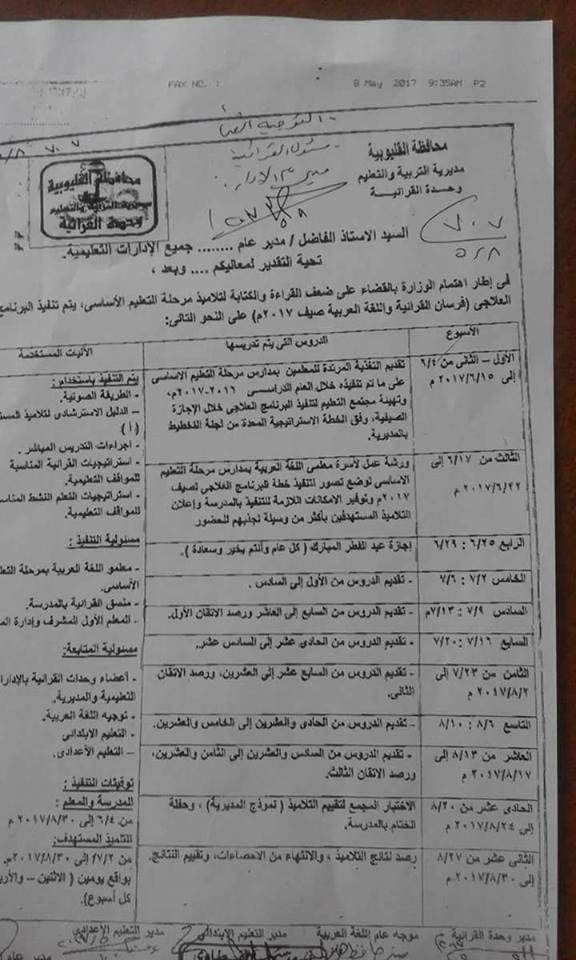 FAX NO. : 8 May 2017 9:35AM P2
التوجيه الفنى
مسئول القرائية
مدير عام الإدارة
محافظة القليوبية
مديرية التربية والتعليم
وحدة القرائية
محافظة القليوبية
مديرية التربية والتعليم
وحدة القرائية
٧٠٧
٥/٨
السيد الاستاذ الفاضل / مدير عام ........ جميع الإدارات التعليمية.
تحية التقدير لمعاليكم .... وبعد ،
فى إطار اهتمام الوزارة بالقضاء على ضعف القراءة والكتابة لتلاميذ مرحلة التعليم الأساسى، يتم تنفيذ البرنامج
العلاجى (فرسان القرائية واللغة العربية صيف ٢٠١٧م) على النحو التالى:
الأسبوع
الدروس التى يتم تدريسها
الآليات المستخدمة
الأول – الثانى من ٦/٤
إلى ٢٠١٧/٦/١٥ م
تقديم التغذية المرتدة للمعلمين بمدارس مرحلة التعليم الاساسى
على ما تم تنفيذه خلال العام الدراسى ٢٠١٦-٢٠١٧م،
وتهيئة مجتمع التعليم لتنفيذ البرنامج العلاجى خلال الإجازة
الصيفية، وفق الخطة الاستراتيجية المعدة من لجنة التخطيط
بالمديرية.
الثالث من ٦/١٧ إلى
٢٠١٧/٦/٢٢ م
ورشة عمل لأسرة معلمى اللغة العربية بمدارس مرحلة التعليم
الاساسى لوضع تصور لتنفيذ خطة للبرنامج العلاجى لصيف
٢٠١٧م وتوفير الامكانات اللازمة للتنفيذ بالمدرسة وإعلان
التلاميذ المستهدفين بأكثر من وسيلة لجذبهم للحضور
الرابع ٦/٢٥ : ٦/٢٩
إجازة عيد الفطر المبارك ( كل عام وأنتم بخير وسعادة ).
الخامس ٧/٢ : ٧/٦
- تقديم الدروس من الأول إلى السادس .
السادس ٧/٩ : ٧/١٣م
- تقديم الدروس من السابع إلى العاشر ورصد الاتقان الأول.
السابع ٧/١٦ : ٧/٢٠
- تقديم الدروس من الحادى عشر إلى السادس عشر.
الثامن من ٧/٢٣ إلى
٢٠١٧/٨/٢ م
- تقديم الدروس من السابع عشر إلى العشرين، ورصد الاتقان
الثانى.
التاسع ٨/٦ : ٨/١٠
- تقديم الدروس من الحادى والعشرين إلى الخامس والعشرين.
العاشر من ٨/١٣ إلى
٢٠١٧/٨/١٧ م
- تقديم الدروس من السادس والعشرين إلى الثامن والعشرين،
ورصد الاتقان الثالث.
الحادى عشر من ٨/٢٠
إلى ٢٠١٧/٨/٢٤ م
الاختبار المجمع لتقييم التلاميذ ( نموذج المديرية ) ، وحفلة
الختام بالمدرسة.
الثانى عشر من ٨/٢٧
إلى ٢٠١٧/٨/٣٠ م
رصد نتائج التلاميذ ، والانتهاء من الاحصاءات، وتقييم النتائج.
يتم التنفيذ باستخدام :
- الطريقة الصوتية.
- الدليل الاسترشادى لتلاميذ
( أ )
- اجراءات التدريس المباشر .
- استراتيجيات القرائية المناسبة
للمواقف التعليمية.
- استراتيجيات التعلم النشط
للمواقف التعليمية.
مسئولية التنفيذ :
- معلمو اللغة العربية بمرحلة
الأساسى.
- منسق القرائية بالمدرسة.
- المعلم الأول المشرف وإدارة
مسئولية المتابعة:
- أعضاء وحدات القرائية
التعليمية والمديرية.
- توجيه اللغة العربية.
- التعليم الابتدائى
– التعليم الأعدادى.
توقيتات التنفيذ :
المدرسة والمعلم :
من ٦/٤ إلى ٢٠١٧/٨/٣٠ م
التلميذ المستهدف:
من ٧/٢ إلى ٢٠١٧/٨/٣٠م.
بواقع يومين ( الاثنين –
كل أسبوع).
مدير وحدة القرائية
موجه عام اللغة العربية
مدير التعليم الإبتدائى
مدير التعليم الإعدادى
مدير